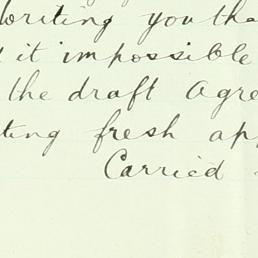 writing you tha
it impossible
the draft Agre
ting fresh app
Carried